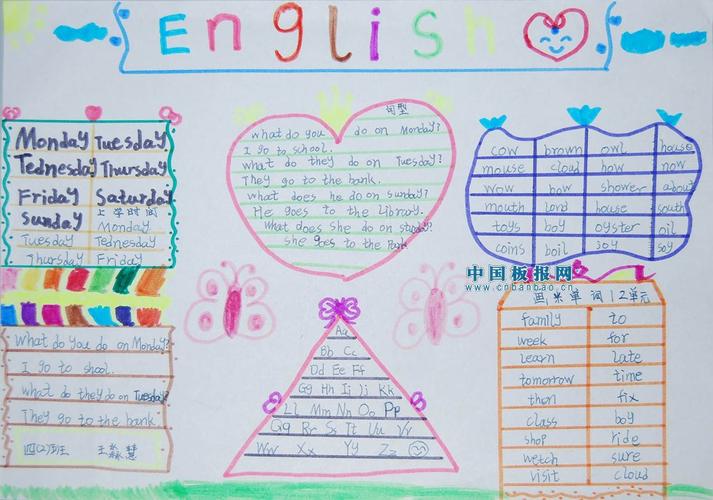 English
Monday Tuesday
Tednesday Thursday
Friday Saturday
Sunday 上学时间
Monday
Tuesday Tednesday
Thursday Friday
句型
what do you do on Monday?
I go to school.
what do they do on Tuesday?
They go to the bank.
what does he do on sunday?
He goes to the Library.
What does she do on
she goes to the Park
cow brown owl house
mouse cloud how now
wow bow shower about
mouth lord house south
toys boy oyster oil
coins boil joy soy
中国板报网
www.cnbanbao.cn
What do you do on Monday?
I go to shool.
what do they do on Tuesday?
They go to the bank.
四(2)班 王淼慧
Aa
Bb Cc
Dd Ee Ff
Gg Hh Ii Jj Kk
Ll Mm Nn Oo Pp
Qq Rr Ss Tt Uu Vv
Ww Xx Yy Zz
单词 1 2单元
family to
week for
learn late
tomorrow time
then fix
class boy
shop ride
wetch sure
visit cloud